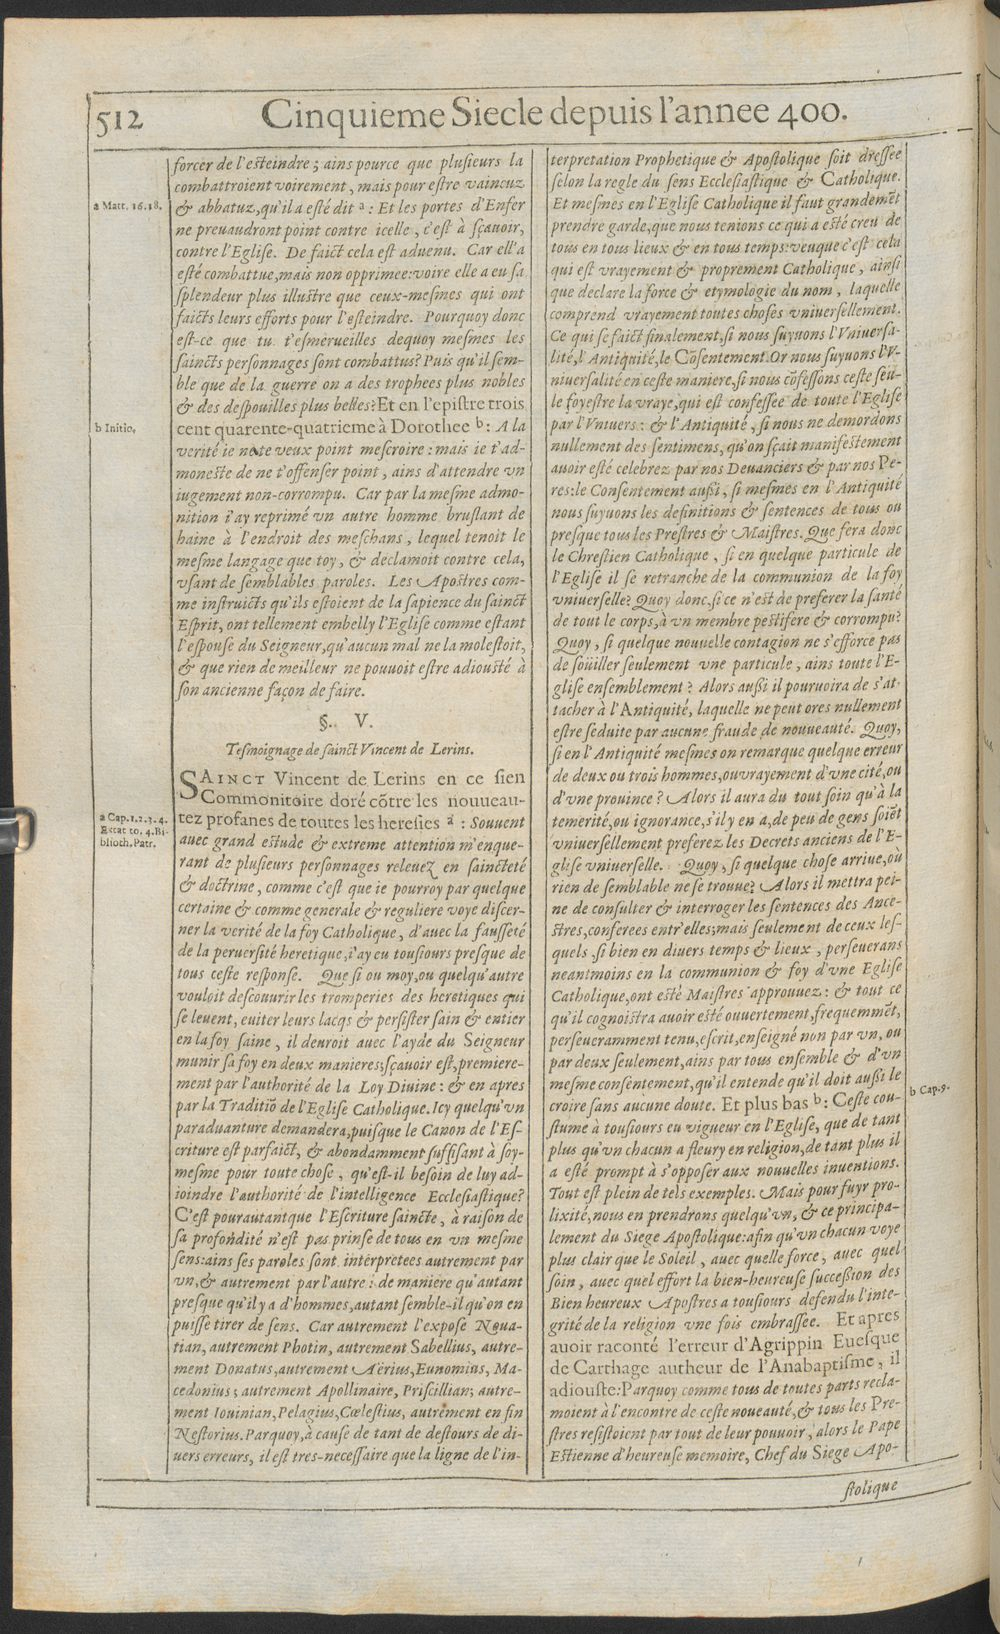 512
Cinquieme Siecle depuis l'annee 400.
forcer de l'esteindre; ains pource que plusieurs la
combattroient voirement, mais pour estre vaincuz
a Matt. 16.18.
& abbatuz, qu'il a esté dit a: Et les portes d'Enfer
ne prevaudront point contre icelle, c'est à sçavoir,
contre l'Eglise. De faict cela est advenu. Car ell'a
esté combattue, mais non opprimee: voire elle a eu sa
splendeur plus illustre que ceux-mesmes qui ont
faicts leurs efforts pour l'esteindre. Pourquoy donc
est-ce que tu t'esmerueilles dequoy mesmes les
saincts personnages sont combattus? Puis qu'il sem-
ble que de la guerre on a des trophees plus nobles
& des despouilles plus belles? Et en l'epistre trois
b Initio.
cent quarente-quatrieme à Dorothee b: A la
verité ie ne te veux point mescroire: mais ie t'ad-
moneste de ne t'offenser point, ains d'attendre vn
iugement non-corrompu. Car par la mesme admo-
nition i'ay reprimé vn autre homme bruslant de
haine à l'endroit des meschans, lequel tenoit le
mesme langage que toy, & declamoit contre cela,
vsant de semblables paroles. Les Apostres com-
me instruicts qu'ils estoient de la sapience du sainct
Esprit, ont tellement embelly l'Eglise comme estant
l'espouse du Seigneur, qu'aucun mal ne la molestoit,
& que rien de meilleur ne pouuoit estre adiousté à
son ancienne façon de faire.
§. V.
Tesmoignage de sainct Vincent de Lerins.
SAINCT Vincent de Lerins en ce sien
Commonitoire doré cõtre les nouueau-
a Cap.1.2.3.4.
Extat to. 4. Bi-
blioth. Patr.
tez profanes de toutes les heresies a: Souuent
auec grand estude & extreme attention m'enque-
rant de plusieurs personnages releuez en saincteté
& doctrine, comme c'est que ie pourroy par quelque
certaine & comme generale & reguliere voye discer-
ner la verité de la foy Catholique, d'auec la fausseté
de la peruersité heretique, i'ay eu tousiours presque de
tous ceste response. Que si ou moy, ou quelqu'autre
vouloit descouurir les tromperies des heretiques qui
se leuent, euiter leurs lacqs & persister sain & entier
en la foy saine, il deuroit auec l'ayde du Seigneur
munir sa foy en deux manieres; sçauoir est, premiere-
ment par l'authorité de la Loy Diuine: & en apres
par la Traditiõ de l'Eglise Catholique. Icy quelqu'vn
paraduanture demandera, puisque le Canon de l'Es-
criture est parfaict, & abondamment suffisant à soy-
mesme pour toute chose, qu'est-il besoin de luy ad-
ioindre l'authorité de l'intelligence Ecclesiastique?
C'est pourautant que l'Escriture saincte, à raison de
sa profondité n'est pas prinse de tous en vn mesme
sens: ains ses paroles sont interpretees autrement par
vn, & autrement par l'autre: de maniere qu'autant
presque qu'il y a d'hommes, autant semble-il qu'on en
puisse tirer de sens. Car autrement l'expose Noua-
tian, autrement Photin, autrement Sabellius, autre-
ment Donatus, autrement Aërius, Eunomius, Ma-
cedonius; autrement Apollinaire, Priscillian; autre-
ment Iouinian, Pelagius, Cœlestius, autrement en fin
Nestorius. Parquoy, à cause de tant de destours de di-
uers erreurs, il est tres-necessaire que la ligne de l'in-
terpretation Prophetique & Apostolique soit dressee
selon la regle du sens Ecclesiastique & Catholique.
Et mesmes en l'Eglise Catholique il faut grandemẽt
prendre garde, que nous tenions ce qui a esté creu de
tous en tous lieux & en tous temps: veuque c'est cela
qui est vrayement & proprement Catholique, ainsi
que declare la force & etymologie du nom, laquelle
comprend vrayement toutes choses vniuersellement.
Ce qui se faict finalement, si nous suyuons l'Vniuersa-
lité, l'Antiquité, le Cõsentement. Or nous suyuons l'V-
niuersalité en ceste maniere, si nous cõfessons ceste seu-
le foy estre la vraye, qui est confessee de toute l'Eglise
par l'Vniuers: & l'Antiquité, si nous ne demordons
nullement des sentimens, qu'on sçait manifestement
auoir esté celebrez par nos Deuanciers & par nos Pe-
res: le Consentement aussi, si mesmes en l'Antiquité
nous suyuons les definitions & sentences de tous ou
presque tous les Prestres & Maistres. Que fera donc
le Chrestien Catholique, si en quelque particule de
l'Eglise il se retranche de la communion de la foy
vniuerselle? Quoy donc, si ce n'est de preferer la santé
de tout le corps, à vn membre pestifere & corrompu?
Quoy, si quelque nouuelle contagion ne s'efforce pas
de soüiller seulement vne particule, ains toute l'E-
glise ensemblement? Alors aussi il pouruoira de s'at-
tacher à l'Antiquité, laquelle ne peut ores nullement
estre seduite par aucune fraude de nouueauté. Quoy,
si en l'Antiquité mesmes on remarque quelque erreur
de deux ou trois hommes, ou vrayement d'vne cité, ou
d'vne prouince? Alors il aura du tout soin qu'à la
temerité, ou ignorance, s'il y en a, de peu de gens soiẽt
vniuersellement preferez les Decrets anciens de l'E-
glise vniuerselle. Quoy, si quelque chose arriue, où
rien de semblable ne se trouue? Alors il mettra pei-
ne de consulter & interroger les sentences des Ance-
stres, conferees entr'elles; mais seulement de ceux les-
quels, si bien en diuers temps & lieux, perseuerans
neantmoins en la communion & foy d'vne Eglise
Catholique, ont esté Maistres approuuez: & tout ce
qu'il cognoistra auoir esté ouuertement, frequemmẽt,
perseueramment tenu, escrit, enseigné non par vn, ou
par deux seulement, ains par tous ensemble & d'vn
mesme consentement, qu'il entende qu'il doit aussi le
b Cap.9.
croire sans aucune doute. Et plus bas b: Ceste cou-
stume à tousiours eu vigueur en l'Eglise, que de tant
plus qu'vn chacun a fleury en religion, de tant plus il
a esté prompt à s'opposer aux nouuelles inuentions.
Tout est plein de tels exemples. Mais pour fuyr pro-
lixité, nous en prendrons quelqu'vn, & ce principa-
lement du Siege Apostolique: afin qu'vn chacun voye
plus clair que le Soleil, auec quelle force, auec quel
soin, auec quel effort la bien-heureuse succession des
Bien heureux Apostres a tousiours defendu l'inte-
grité de la religion vne fois embrassee. Et apres
auoir raconté l'erreur d'Agrippin Euesque
de Carthage autheur de l'Anabaptisme, il
adiouste: Parquoy comme tous de toutes parts recla-
moient à l'encontre de ceste noueauté, & tous les Pre-
stres resistoient par tout de leur pouuoir, alors le Pape
Estienne d'heureuse memoire, Chef du Siege Apo-
stolique